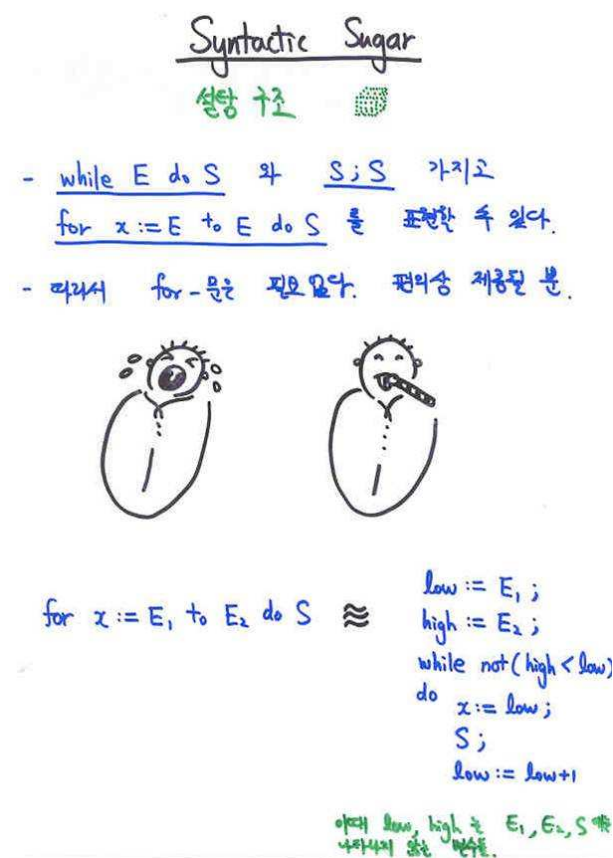 Syntactic Sugar
설탕 구조
- while E do S 와 S;S 가지고
for x := E to E do S 를 표현할 수 있다.
- 따라서 for-문은 필요없다. 편의상 제공될 뿐.
for x := E₁ to E₂ do S ≋
low := E₁ ;
high := E₂ ;
while not(high < low)
do x := low ;
S ;
low := low+1
이때 low, high 는 E₁, E₂, S 에
나타나지 않는 변수들.